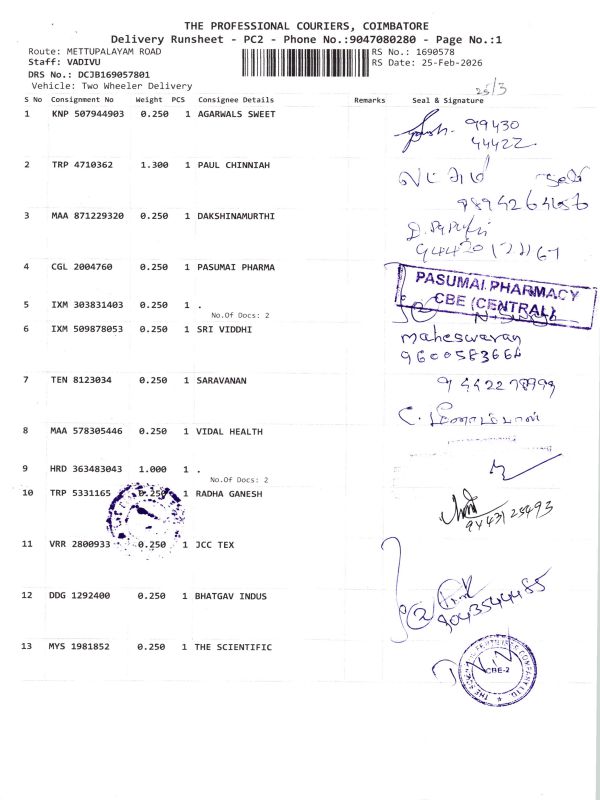 THE PROFESSIONAL COURIERS, COIMBATORE
Delivery Runsheet - PC2 - Phone No.:9047080280 - Page No.:1
Route: METTUPALAYAM ROAD RS No.: 1690578
Staff: VADIVU RS Date: 25-Feb-2026
DRS No.: DCJB169057801
Vehicle: Two Wheeler Delivery
25/3
S No Consignment No Weight PCS Consignee Details Remarks Seal & Signature
1 KNP 507944903 0.250 1 AGARWALS SWEET
99430
44422
2 TRP 4710362 1.300 1 PAUL CHINNIAH
3 MAA 871229320 0.250 1 DAKSHINAMURTHI
4 CGL 2004760 0.250 1 PASUMAI PHARMA
PASUMAI PHARMACY
CBE (CENTRAL)
5 IXM 303831403 0.250 1 .
No.Of Docs: 2
6 IXM 509878053 0.250 1 SRI VIDDHI
maheswaran
9600583664
7 TEN 8123034 0.250 1 SARAVANAN
8 MAA 578305446 0.250 1 VIDAL HEALTH
9 HRD 363483043 1.000 1 .
No.Of Docs: 2
10 TRP 5331165 0.250 1 RADHA GANESH
9443125493
11 VRR 2800933 0.250 1 JCC TEX
12 DDG 1292400 0.250 1 BHATGAV INDUS
9043544485
13 MYS 1981852 0.250 1 THE SCIENTIFIC
CBE-2